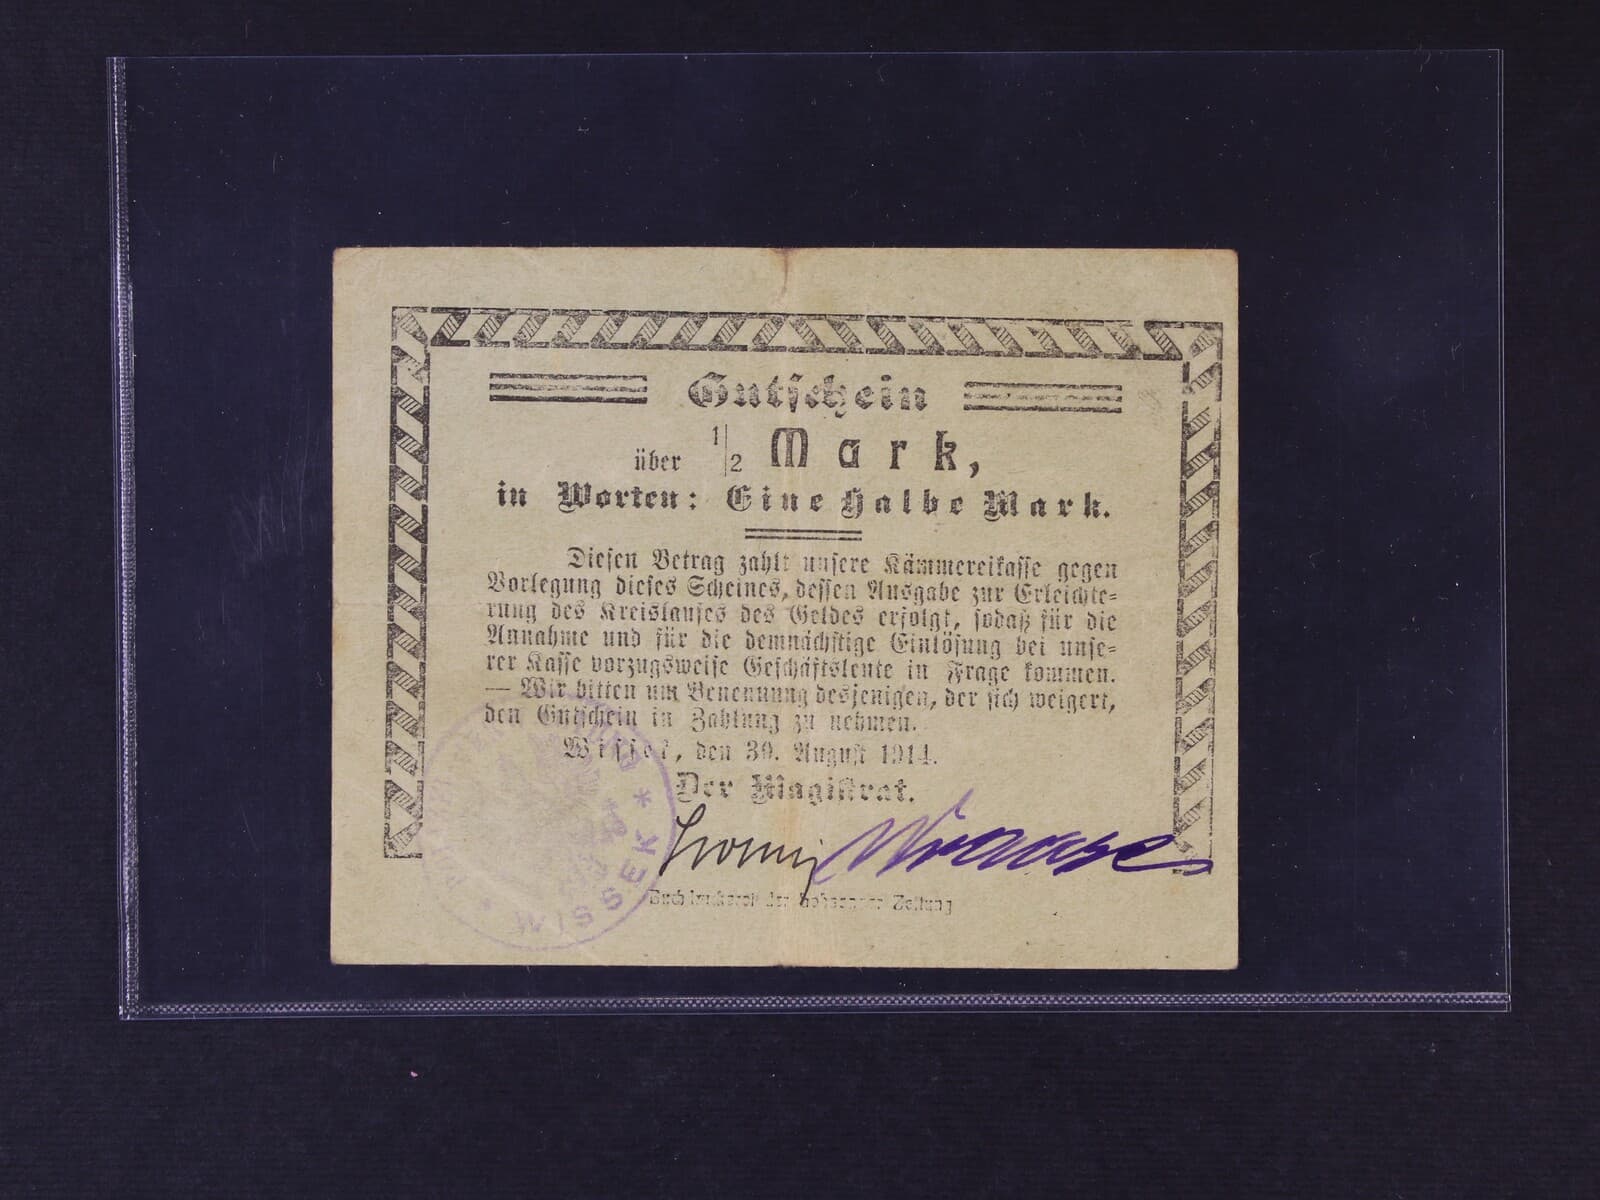 Gutschein
über 1/2 Mark,
in Worten: Eine halbe Mark.
Diesen Betrag zahlt unsere Kämmereikasse gegen
Vorlegung dieses Scheines, dessen Ausgabe zur Erleichte-
rung des Kreislaufes des Geldes erfolgt, sodaß für die
Annahme und für die demnächstige Einlösung bei unse-
rer Kasse vorzugsweise Geschäftsleute in Frage kommen.
— Wir bitten um Benennung desjenigen, der sich weigert,
den Gutschein in Zahlung zu nehmen.
Wissek, den 30. August 1914.
Der Magistrat.
Buchdruckerei der Zeitung
WISSEK *